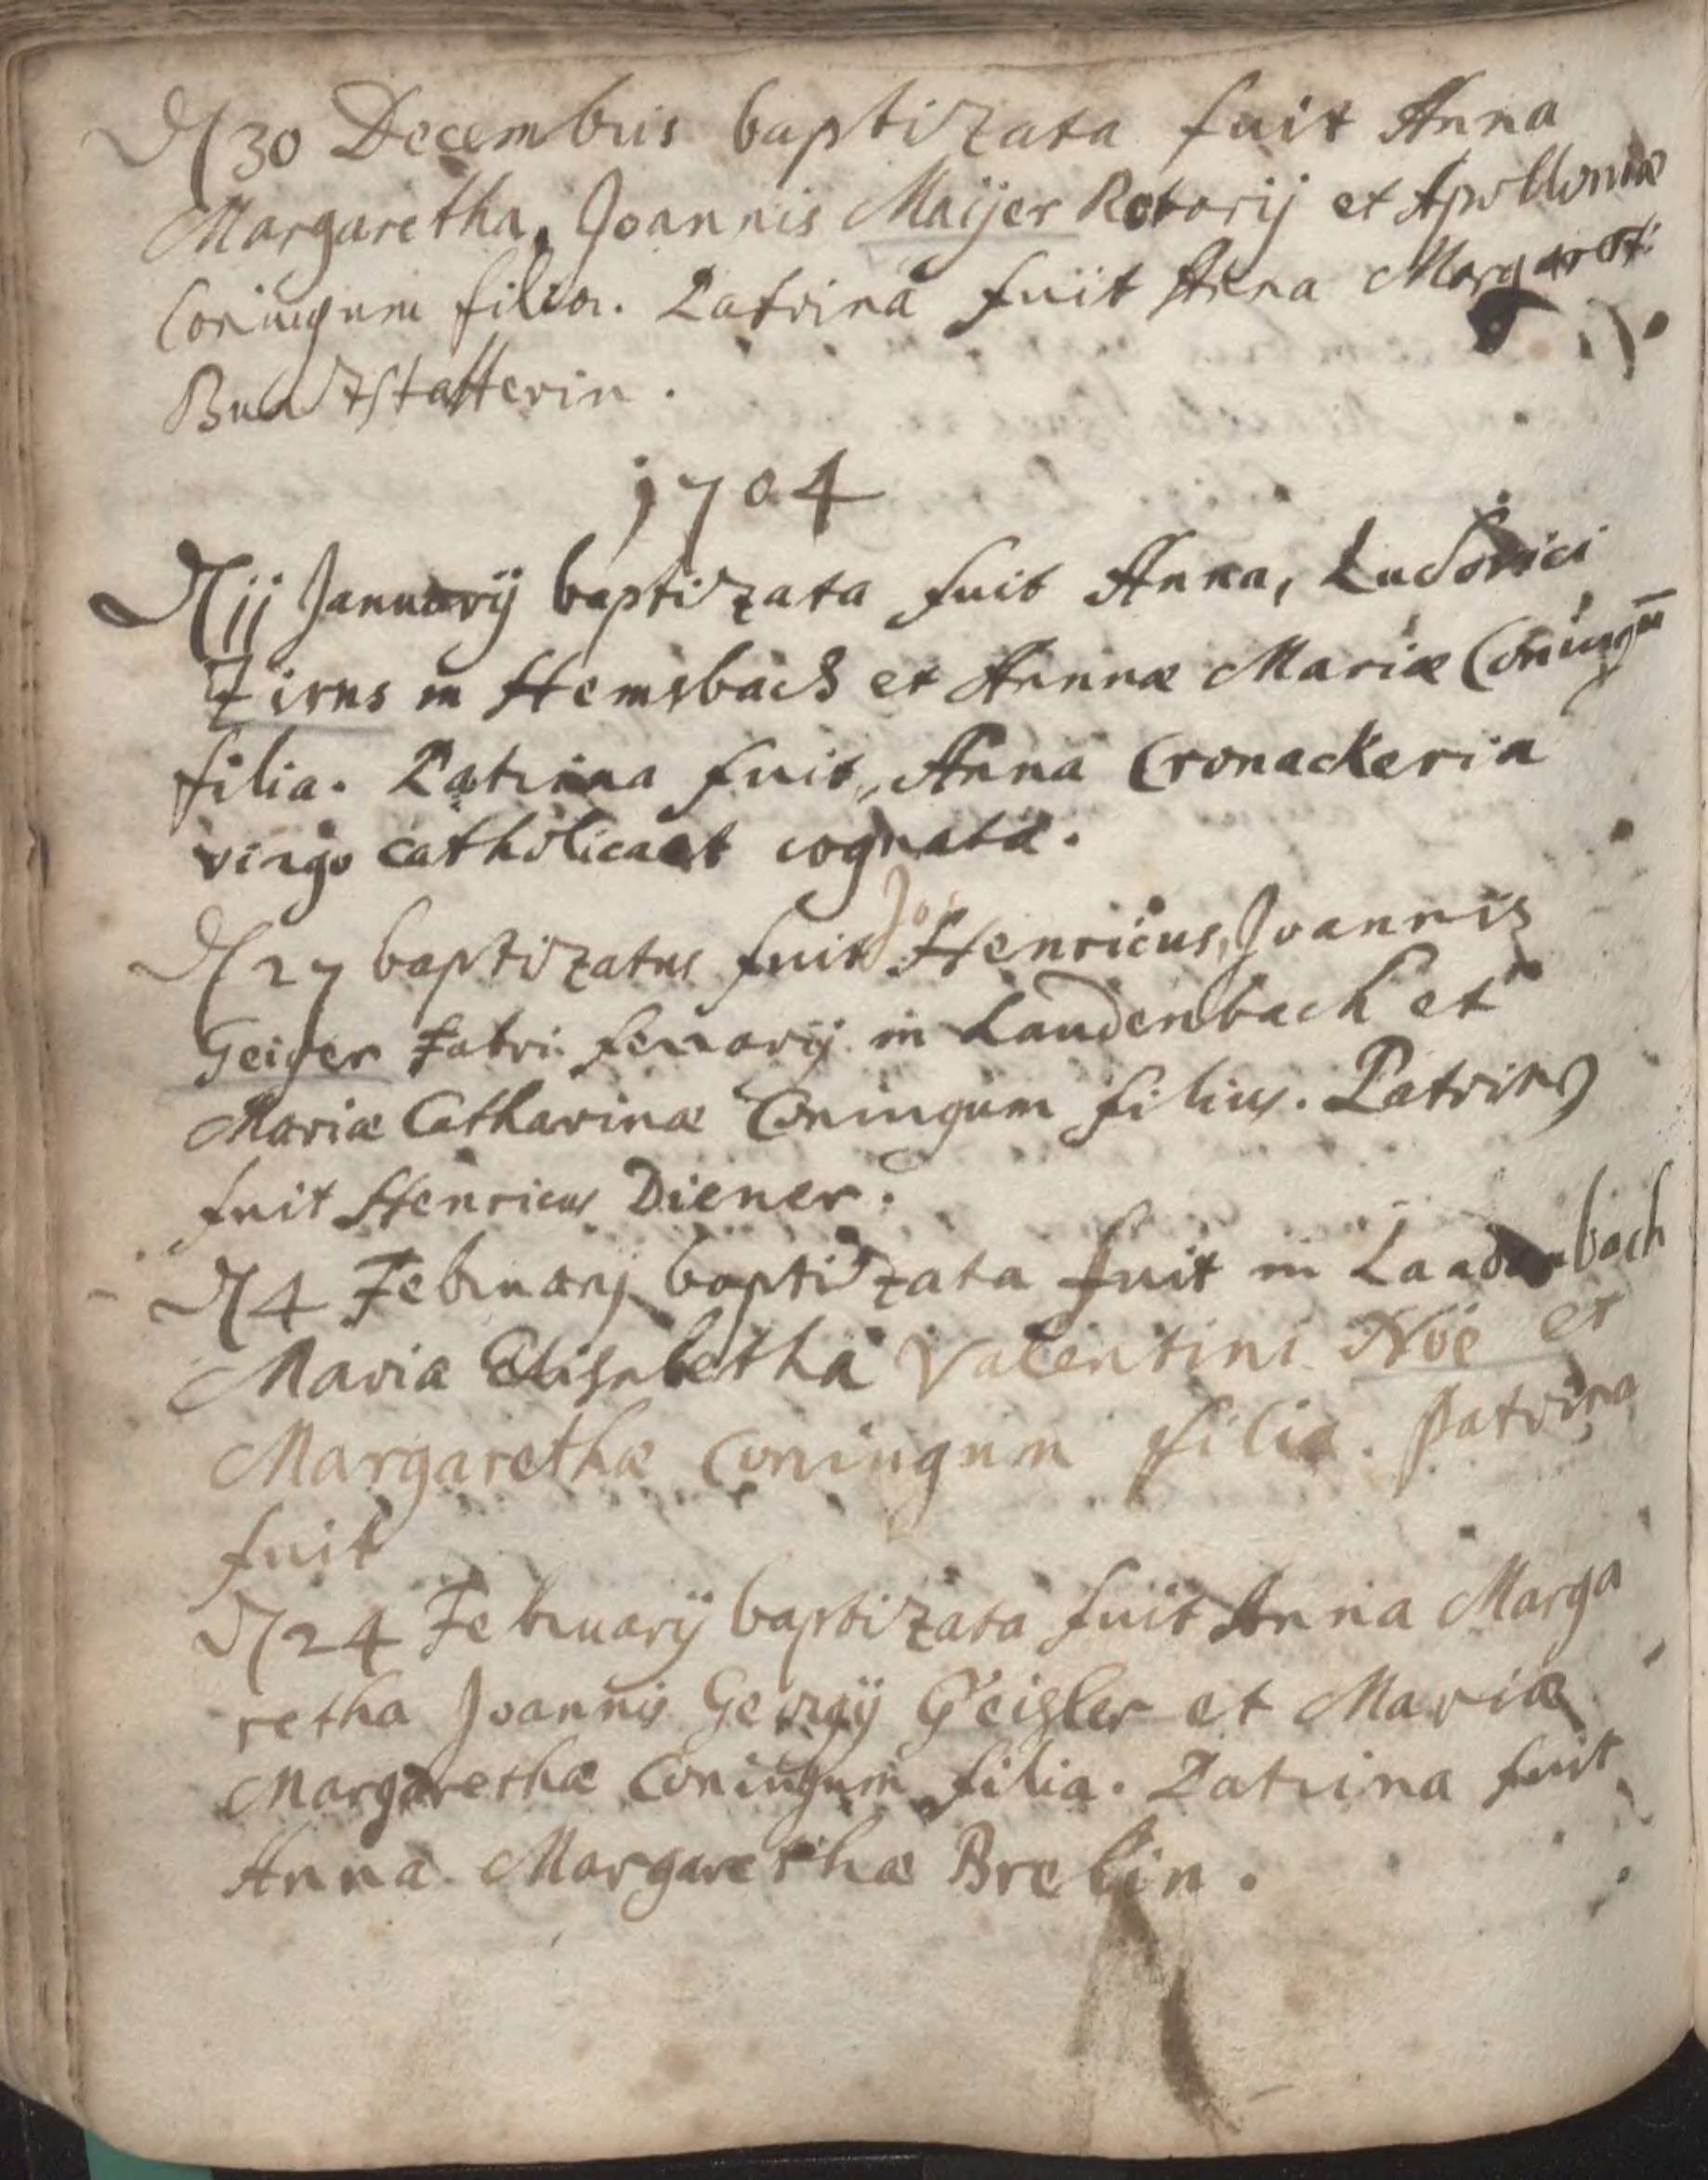 D 30 Decembris baptizata fuit Anna
Margaretha, Joannis Maijer Rotarij et Apolloniæ
Coniugum filia. Patrina fuit Anna Margareth:
1704
D 11 Januarij baptizata fuit Anna, Ludovici
Zirns in Hemsbach et Annnæ Mariæ Coniugū
filia. Patrina fuit, Anna Cronackerin
virgo catholica et cognata.
D 27 baptizatus fuit Joes Henricus, Joannis
Geiger Fabri ferrarij in Laudenbach et
Mariæ Catharinæ Coniugum filius. Patrinus
fuit Henricus Diener.
D 4 Februarij baptizata fuit in Laudenbach
Maria Elisabetha Valentini Noë et
Margarethæ Coniugum filia. Patrina
fuit
D 24 Februarij baptizata fuit Anna Marga
retha Joannis Georgij Geisler et Mariæ
Margarethæ Coniugum filia. Patrina fuit
Anna Margarethæ